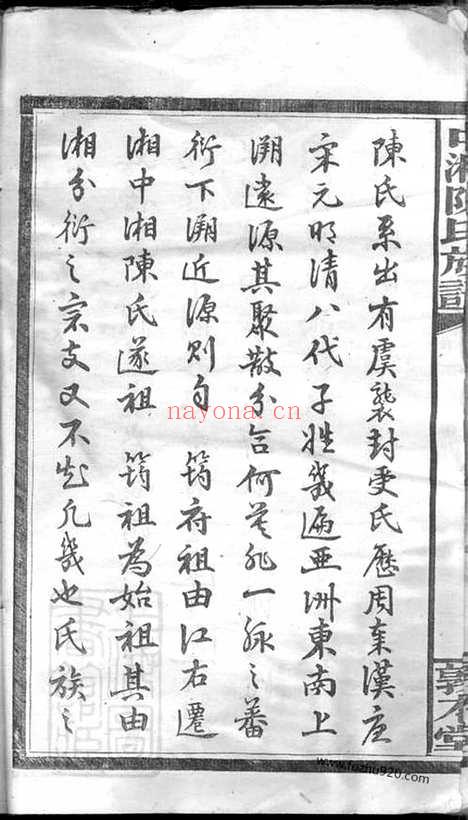 中湘陳氏族譜
敦本堂
陳氏系出有虞襲封受氏歷周秦漢唐
宋元明清八代子姓幾遍亞洲東南上
溯遠源其聚散分合何莫非一脉之蕃
衍下溯近源則自 筠府祖由江右遷
湘中湘陳氏遂祖 筠祖為始祖其由
湘分衍之宗支又不知凡幾也氏族之
nayona.cn
www.fuzhu920.com